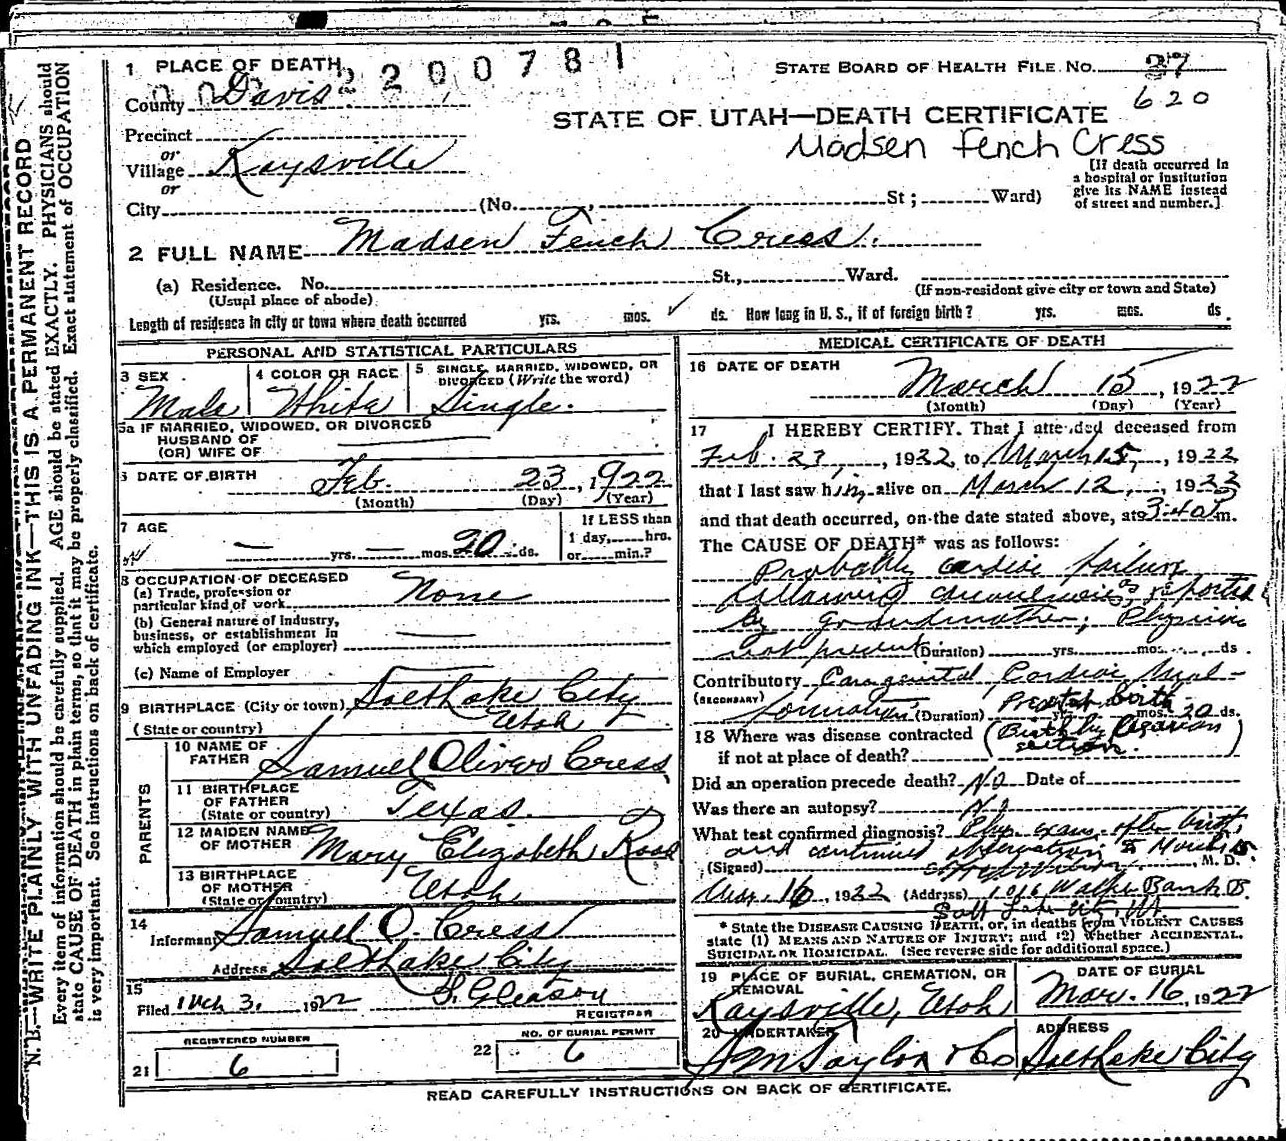 N.B.—WRITE PLAINLY WITH UNFADING INK—THIS IS A PERMANENT RECORD
Every item of information should be carefully supplied. AGE should be stated EXACTLY. PHYSICIANS should
state CAUSE OF DEATH in plain terms, so that it may be properly classified. Exact statement of OCCUPATION
is very important. See instructions on back of certificate.
1 PLACE OF DEATH
2200781
STATE BOARD OF HEALTH FILE NO. 37
620
County Davis
STATE OF UTAH—DEATH CERTIFICATE
Madsen Fench Cress
Precinct
or
Village Kaysville
or
City (No. , St ; Ward)
[If death occurred in
a hospital or institution
give its NAME instead
of street and number.]
2 FULL NAME Madsen Fench Cress.
(a) Residence. No. St., Ward.
(Usual place of abode)
(If non-resident give city or town and State)
Length of residence in city or town where death occurred yrs. mos. ds. How long in U. S., if of foreign birth? yrs. mos. ds.
PERSONAL AND STATISTICAL PARTICULARS
3 SEX
Male
4 COLOR OR RACE
White
5 SINGLE, MARRIED, WIDOWED, OR
DIVORCED (Write the word)
Single.
5a IF MARRIED, WIDOWED, OR DIVORCED
HUSBAND OF
(OR) WIFE OF
6 DATE OF BIRTH Feb. 23, 1922
(Month) (Day) (Year)
7 AGE
— yrs. — mos. 20 ds.
If LESS than
1 day, hrs.
or min.?
8 OCCUPATION OF DECEASED
(a) Trade, profession or
particular kind of work None
(b) General nature of Industry,
business, or establishment in
which employed (or employer)
(c) Name of Employer
9 BIRTHPLACE (City or town) Salt Lake City
(State or country) Utah
PARENTS
10 NAME OF
FATHER Samuel Oliver Cress
11 BIRTHPLACE
OF FATHER
(State or country) Texas.
12 MAIDEN NAME
OF MOTHER Mary Elizabeth
13 BIRTHPLACE
OF MOTHER
(State or country) Utah
14
Informant Samuel O. Cress
Address Salt Lake City
15
Filed Mch 3. 1922 S. Gleason
REGISTRAR
REGISTERED NUMBER
21 6
NO. OF BURIAL PERMIT
22 6
MEDICAL CERTIFICATE OF DEATH
16 DATE OF DEATH
March 15, 1922
(Month) (Day) (Year)
17 I HEREBY CERTIFY. That I attended deceased from
Feb. 23, 1922, to March 15, 1922
that I last saw him alive on March 12, 1922
and that death occurred, on the date stated above, at 3:40 m.
The CAUSE OF DEATH* was as follows:
Probably cardiac failure
following as reported
by grandmother; Physician
not present (Duration) yrs. mos. ds.
Contributory Congenital Cardiac Mal-
(SECONDARY) formation (Duration) yrs. mos. 20 ds.
18 Where was disease contracted
if not at place of death? (Birth by Cesarean
section.)
Did an operation precede death? No Date of
Was there an autopsy? No
What test confirmed diagnosis? Phys. exam. after birth
and continued observation to March 15.
(Signed) M. D.
Mar. 16, 1922 (Address) 1016 Walker Bank B.
Salt Lake City, Ut
* State the DISEASE CAUSING DEATH, or, in deaths from VIOLENT CAUSES
state (1) MEANS AND NATURE OF INJURY; and (2) whether ACCIDENTAL,
SUICIDAL OR HOMICIDAL. (See reverse side for additional space.)
19 PLACE OF BURIAL, CREMATION, OR
REMOVAL
Kaysville, Utah
DATE OF BURIAL
Mar. 16, 1922
20 UNDERTAKER
S M Taylor & Co
ADDRESS
Salt Lake City
READ CAREFULLY INSTRUCTIONS ON BACK OF CERTIFICATE.